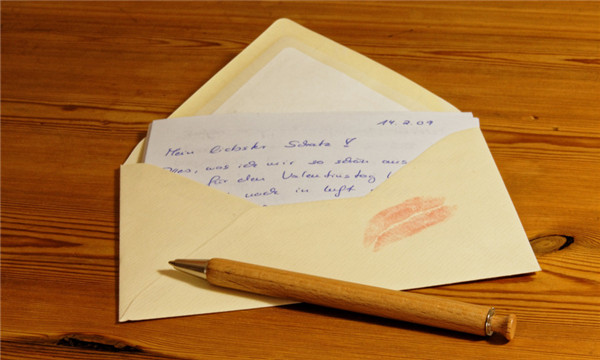 14.2.07
Mein liebster Schatz!
was ich mir so schön aus
für den Valentinstag
noch in